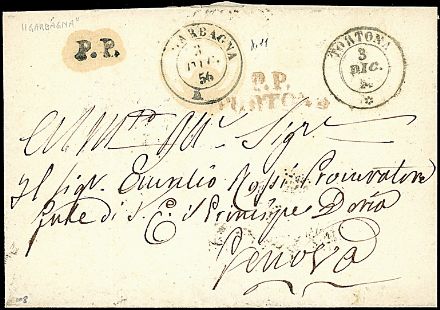 "GARBAGNA"
P.P.
GARBAGNA
3
DIC.
56
TORTONA
3
DIC.
P.P.
TORTONA
All' Ill.mo Sig.r
Il Sig.r Emilio Rossi Procuratore
di S. E. il Principe Doria
Genova